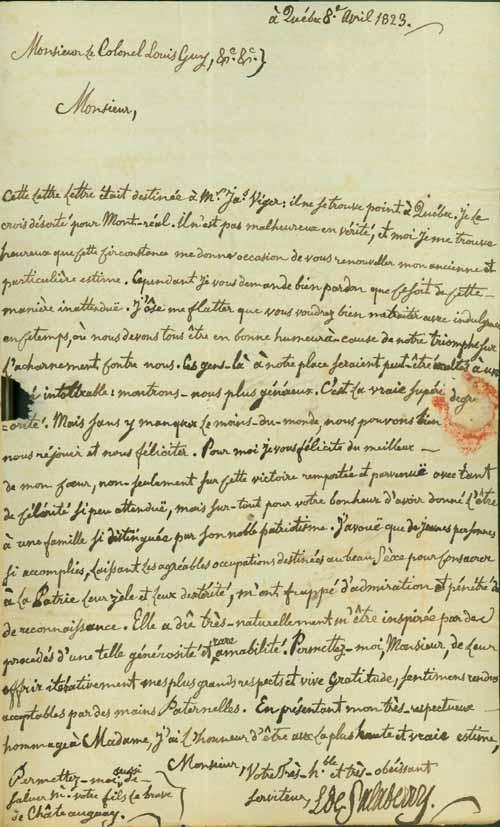 à Québec 8.e Avril 1823.
Monsieur Le Colonel Louis Guy, &c. &c.}
Monsieur,
Cette Lettre Lettre était destinée à Mr. Jas. Viger; il ne se trouve point à Québec. Je le
crois déserté pour Mont-réal. Il n'est pas malheureux en vérité, et moi Je me trouve
heureux que cette circonstance me donne occasion de vous renouveller mon ancienne et
particulière estime. Cependant Je vous demande bien pardon que ce soit de cette
manière inattenduë. J'ôse me flatter que vous voudrez bien me traiter avec indulgence
en ce temps, où nous devons tous être en bonne humeur à cause de notre triomphe sur
L'acharnement contre nous. Ces gens-là à notre place seraient peut-être exaltés à un
degré intolérable: montrons-nous plus généreux. C'est la vraie Supéri-
-orité. Mais sans y manquer Le moins-du-monde, nous pouvons bien
nous réjouir et nous féliciter. Pour moi je vous félicite du meilleur
de mon Cœur, non-seulement sur cette victoire remportée et parvenuë avec tant
de célérité si peu attenduë, mais sur-tout pour votre bonheur d'avoir donné L'être
à une famille si distinguée par son noble patriotisme. J'avouë que de jeunes personnes
si accomplies, Laissant Les agréables occupations destinées au beau Séxe pour consacrer
à La Patrie Leur zèle et Leur dextérité, m'ont frappé d'admiration et pénétré de
de reconnaissance. Elle a dû très-naturellement m'être inspirée par des
procédés d'une telle générosité et rare amabilité. Permettez-moi, Monsieur, de Leur
offrir itérativement mes plus grands respects et vive Gratitude, sentimens rendus
acceptables par des mains Paternelles. En présentant mon très-respectueux
hommage à Madame, J'ai L'honneur d'être avec La plus haute et vraie estime,
Monsieur,
Votre Très-hble et très-obéissant
Serviteur, L. de Salaberry.
Permettez-moi aussi de
saluer Mr. votre fils Le brave
de Châteauguay.